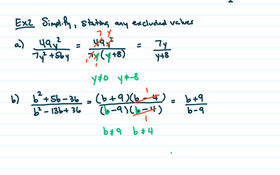 Ex2 Simplify, stating any excluded values
a) 49y² / 7y² + 56y = 49y² / 7y(y+8) = 7y / y+8
7 y
1 1
y≠0 y≠-8
b) b² + 5b - 36 / b² - 13b + 36 = (b+9)(b-4) / (b-9)(b-4) = b+9 / b-9
1
1
b≠9 b≠4